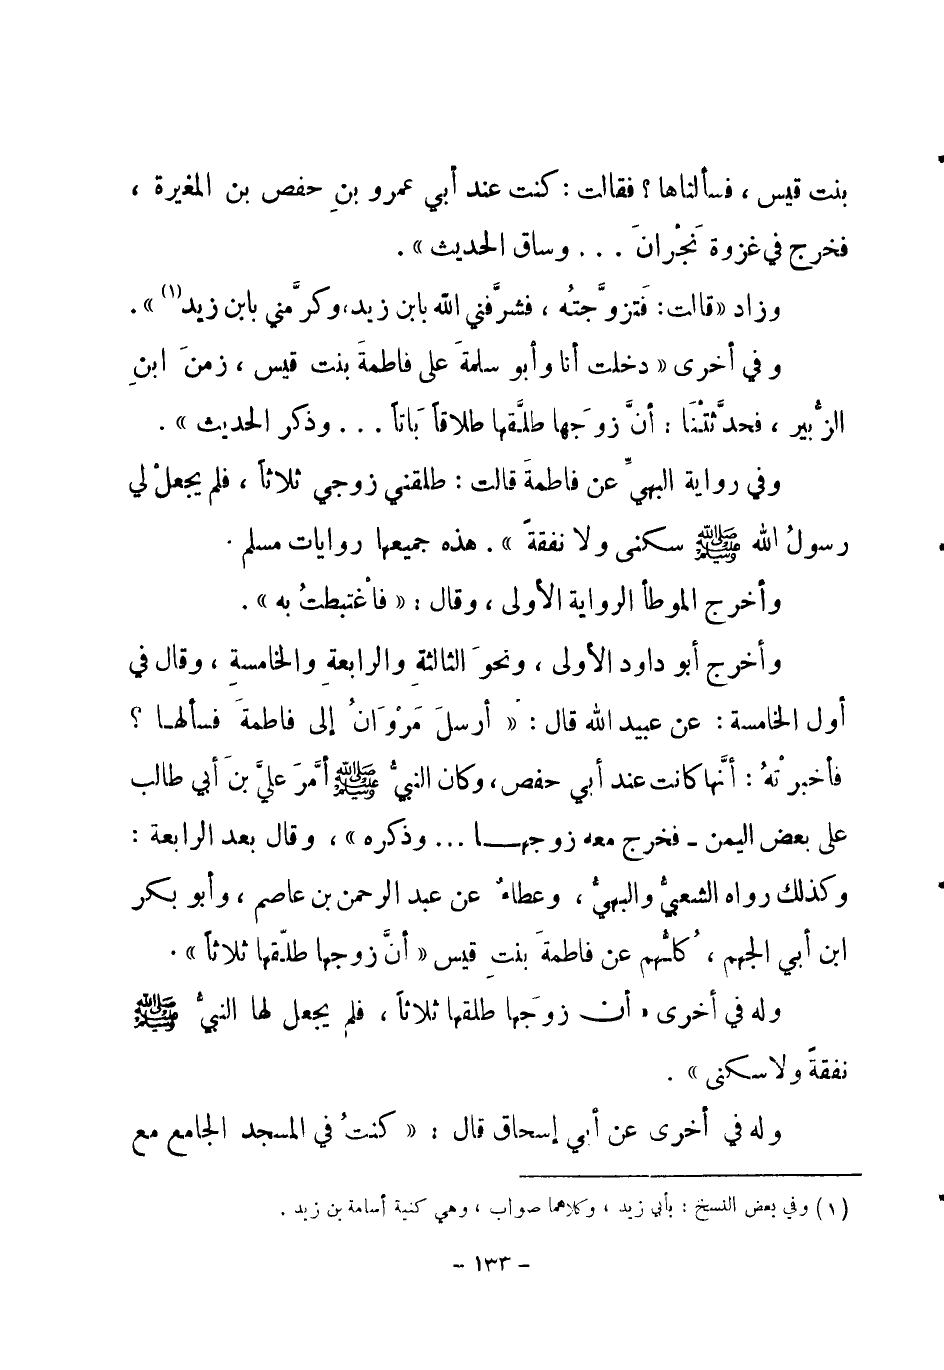 بنت قيس ، فسألناها ؟ فقالت : كنت عند أبي عمرو بنِ حفص بن المغيرة ،
فخرج في غزوة نَجْرانَ . . . وساق الحديث » .
وزاد «قالت: فَتزوَّجتُه ، فشرَّفني الله بابن زيد، وكرَّمني بابن زيد(١) » .
وفي أخرى « دخلت أنا وأبو سلمةَ على فاطمةَ بنت قيس ، زمنَ ابنِ
الزُّبير ، فحدَّثتْنَا : أنَّ زوجَها طلَّقها طلاقاً بَاتاً . . . وذكر الحديث » .
وفي رواية البهيِّ عن فاطمةَ قالت : طلقني زوجي ثلاثاً ، فلم يجعلْ لي
رسولُ الله ﷺ سكنى ولا نفقةً » . هذه جميعها روايات مسلم .
وأخرج الموطأ الرواية الأولى ، وقال : « فاغْتبطتُ به » .
وأخرج أبو داود الأولى ، ونحوَ الثالثةِ والرابعةِ والخامسةِ ، وقال في
أول الخامسة : عن عبيد الله قال : « أرسلَ مَرْوَانُ إلى فاطمةَ فسألها ؟
فأخبرتْهُ : أنَّها كانت عند أبي حفص، وكان النبيُّ ﷺ أمَّرَ عليَّ بنَ أبي طالب
على بعض اليمن ـ فخرج معه زوجهـــا ... وذكره » ، وقال بعد الرابعة :
وكذلك رواه الشعبيُّ والبهيُّ ، وعطاءٌ عن عبد الرحمن بن عاصم ، وأبو بكر
ابن أبي الجهم ، كُلُّهم عن فاطمةَ بنتِ قيس « أنَّ زوجها طلّقها ثلاثاً » .
وله في أخرى « أن زوجَها طلقها ثلاثاً ، فلم يجعل لها النبيُّ ﷺ
نفقةً ولا سكنى » .
وله في أخرى عن أبي إسحاق قال : « كنتُ في المسجد الجامع مع
(١) وفي بعض النسخ : بأبي زيد ، وكلاهما صواب ، وهي كنية أسامة بن زيد .
- ١٣٣ -